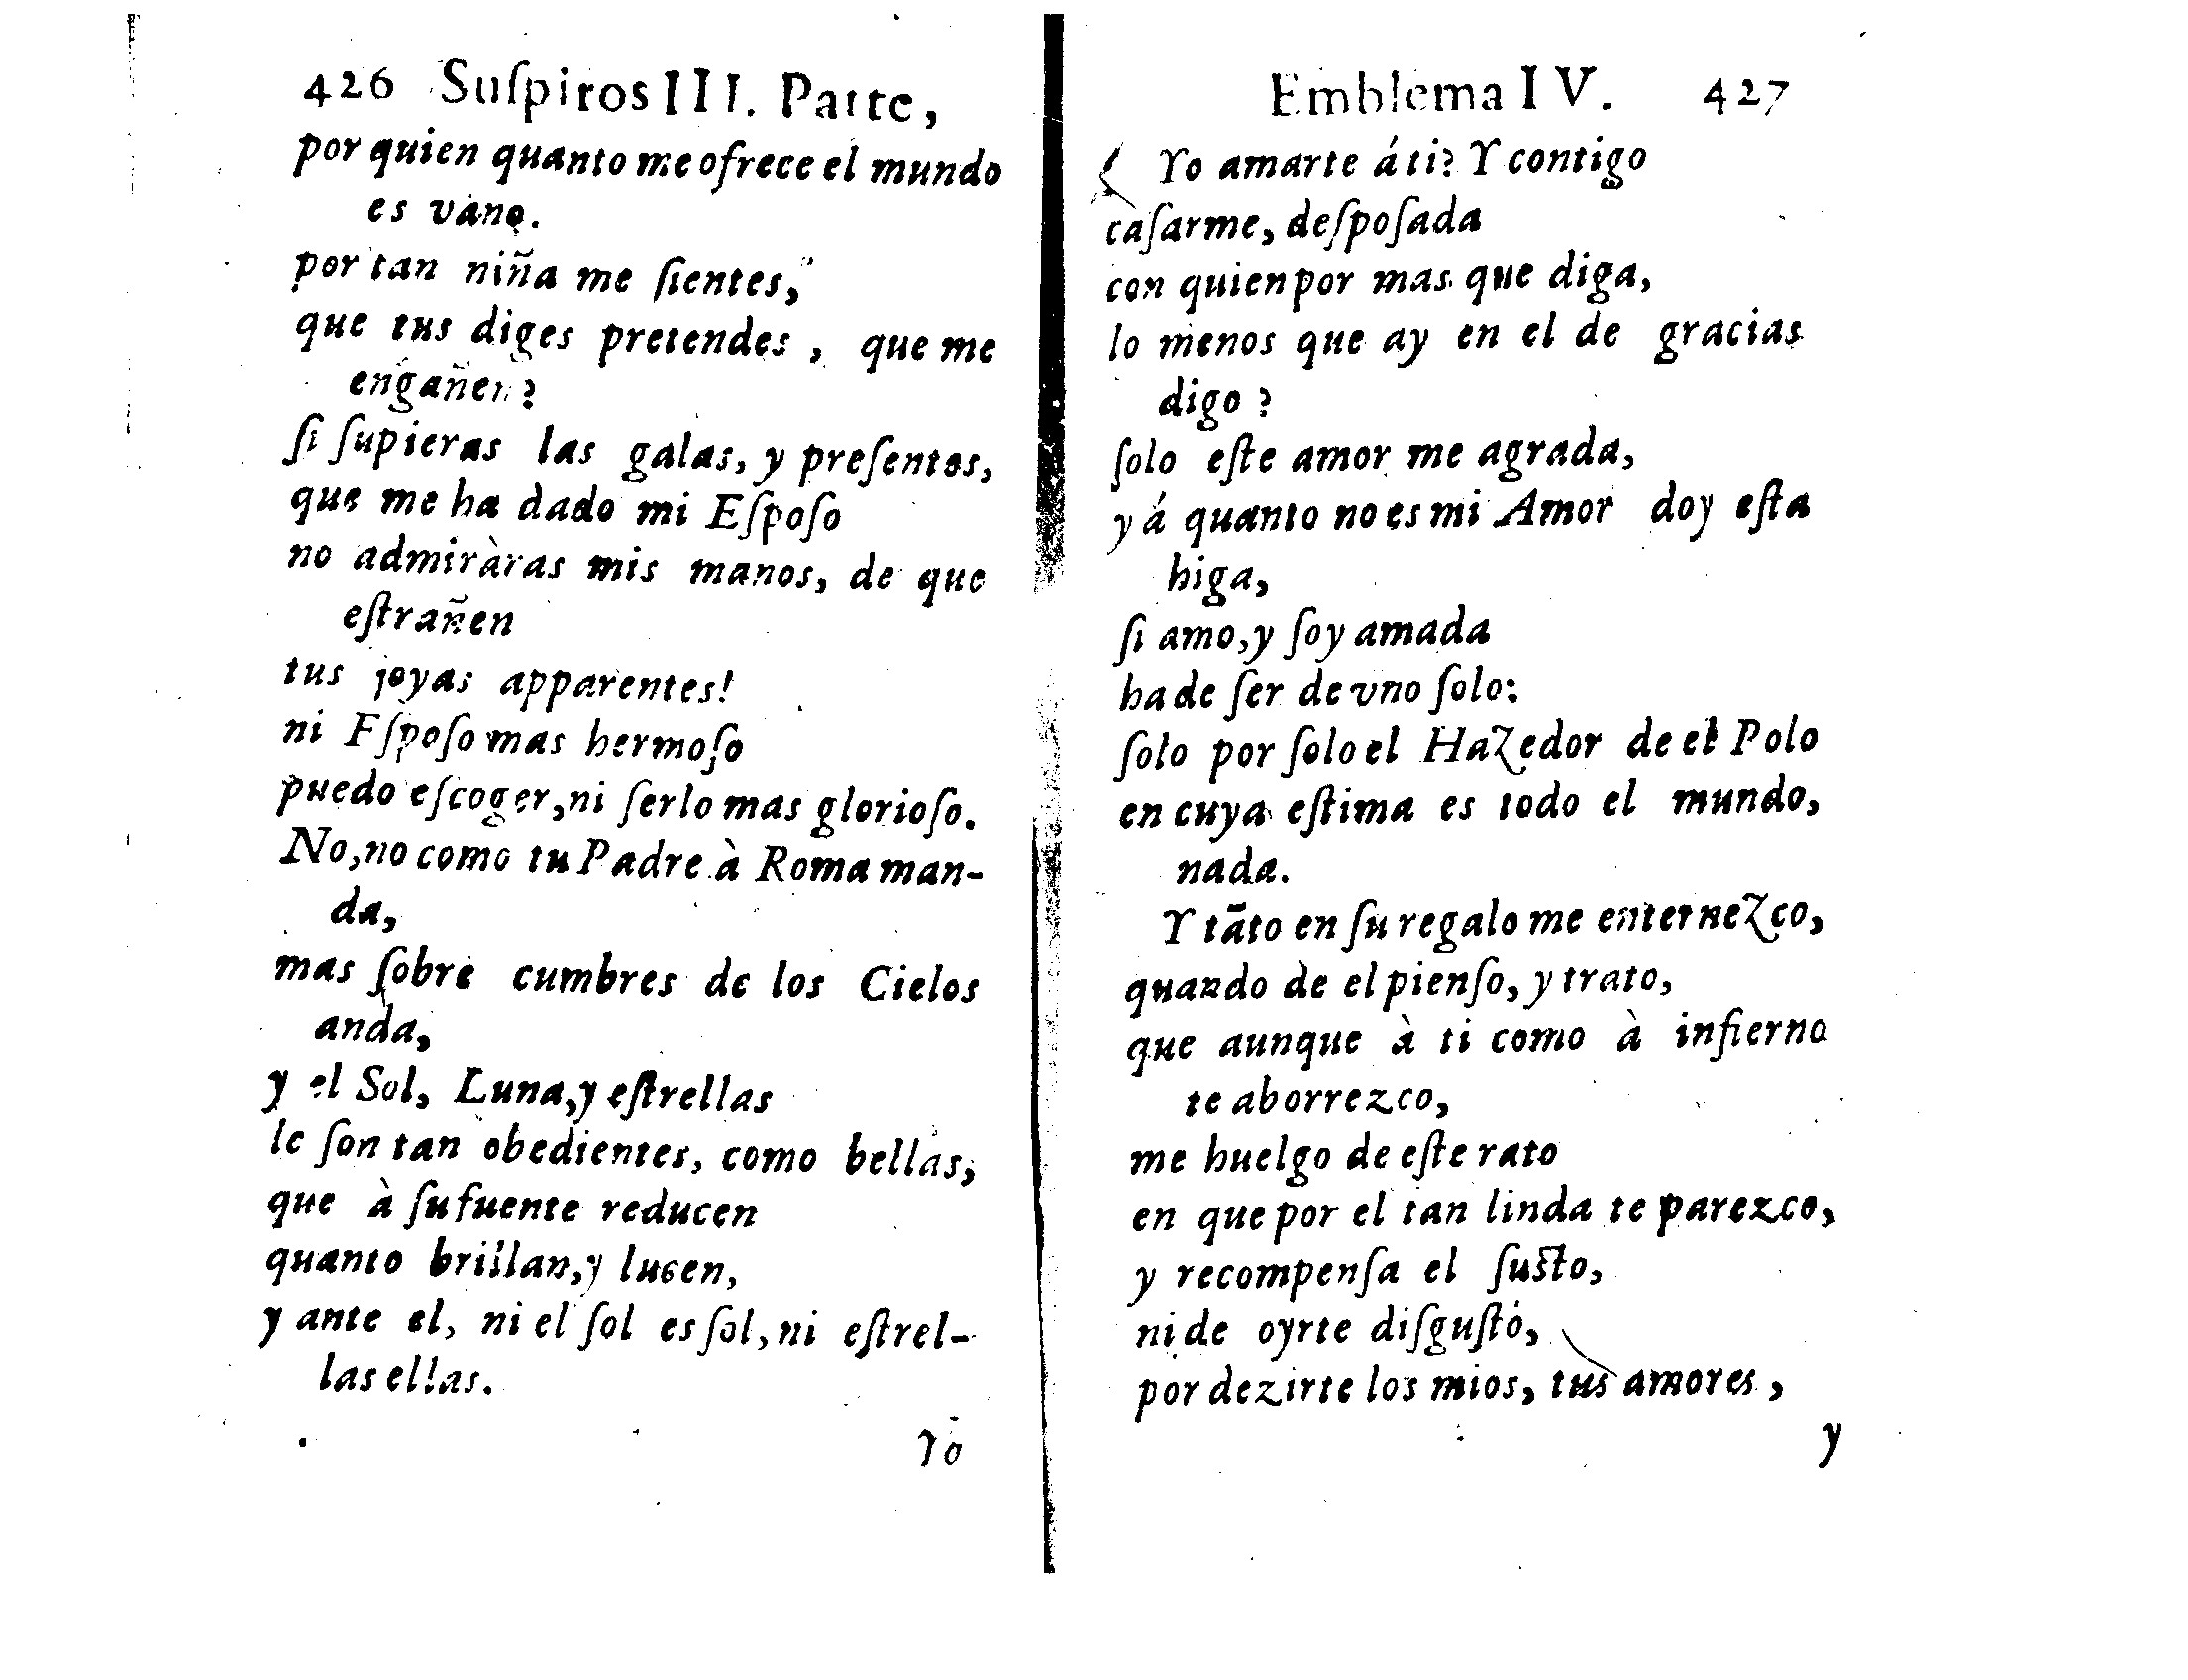 426 Suſpiros III. Parte,
por quien quanto me ofrece el mundo
es vano.
por tan niña me ſientes,
que tus diges pretendes, que me
engañen?
ſi ſupieras las galas, y preſentes,
que me ha dado mi Eſpoſo
no admiràras mis manos, de que
eſtrañen
tus joyas apparentes!
ni Eſpoſo mas hermoſo
puedo eſcoger, ni ſerlo mas glorioſo.
No, no como tu Padre à Roma man-
da,
mas ſobre cumbres de los Cielos
anda,
y el Sol, Luna, y eſtrellas
le ſon tan obedientes, como bellas,
que à ſu fuente reducen
quanto brillan, y lucen,
y ante el, ni el ſol es ſol, ni eſtrel-
las ellas.
Yo
Emblema IV. 427
Yo amarte á ti? Y contigo
caſarme, deſpoſada
con quien por mas que diga,
lo menos que ay en el de gracias
digo?
ſolo eſte amor me agrada,
y á quanto no es mi Amor doy eſta
higa,
ſi amo, y ſoy amada
ha de ſer de vno ſolo:
ſolo por ſolo el Hazedor de el Polo
en cuya eſtima es todo el mundo,
nada.
Y tãto en ſu regalo me enternezco,
quando de el pienſo, y trato,
que aunque à ti como à infierno
te aborrezco,
me huelgo de eſte rato
en que por el tan linda te parezco,
y recompenſa el ſuſto,
ni de oyrte diſguſto,
por dezirte los mios, tus amores,
y